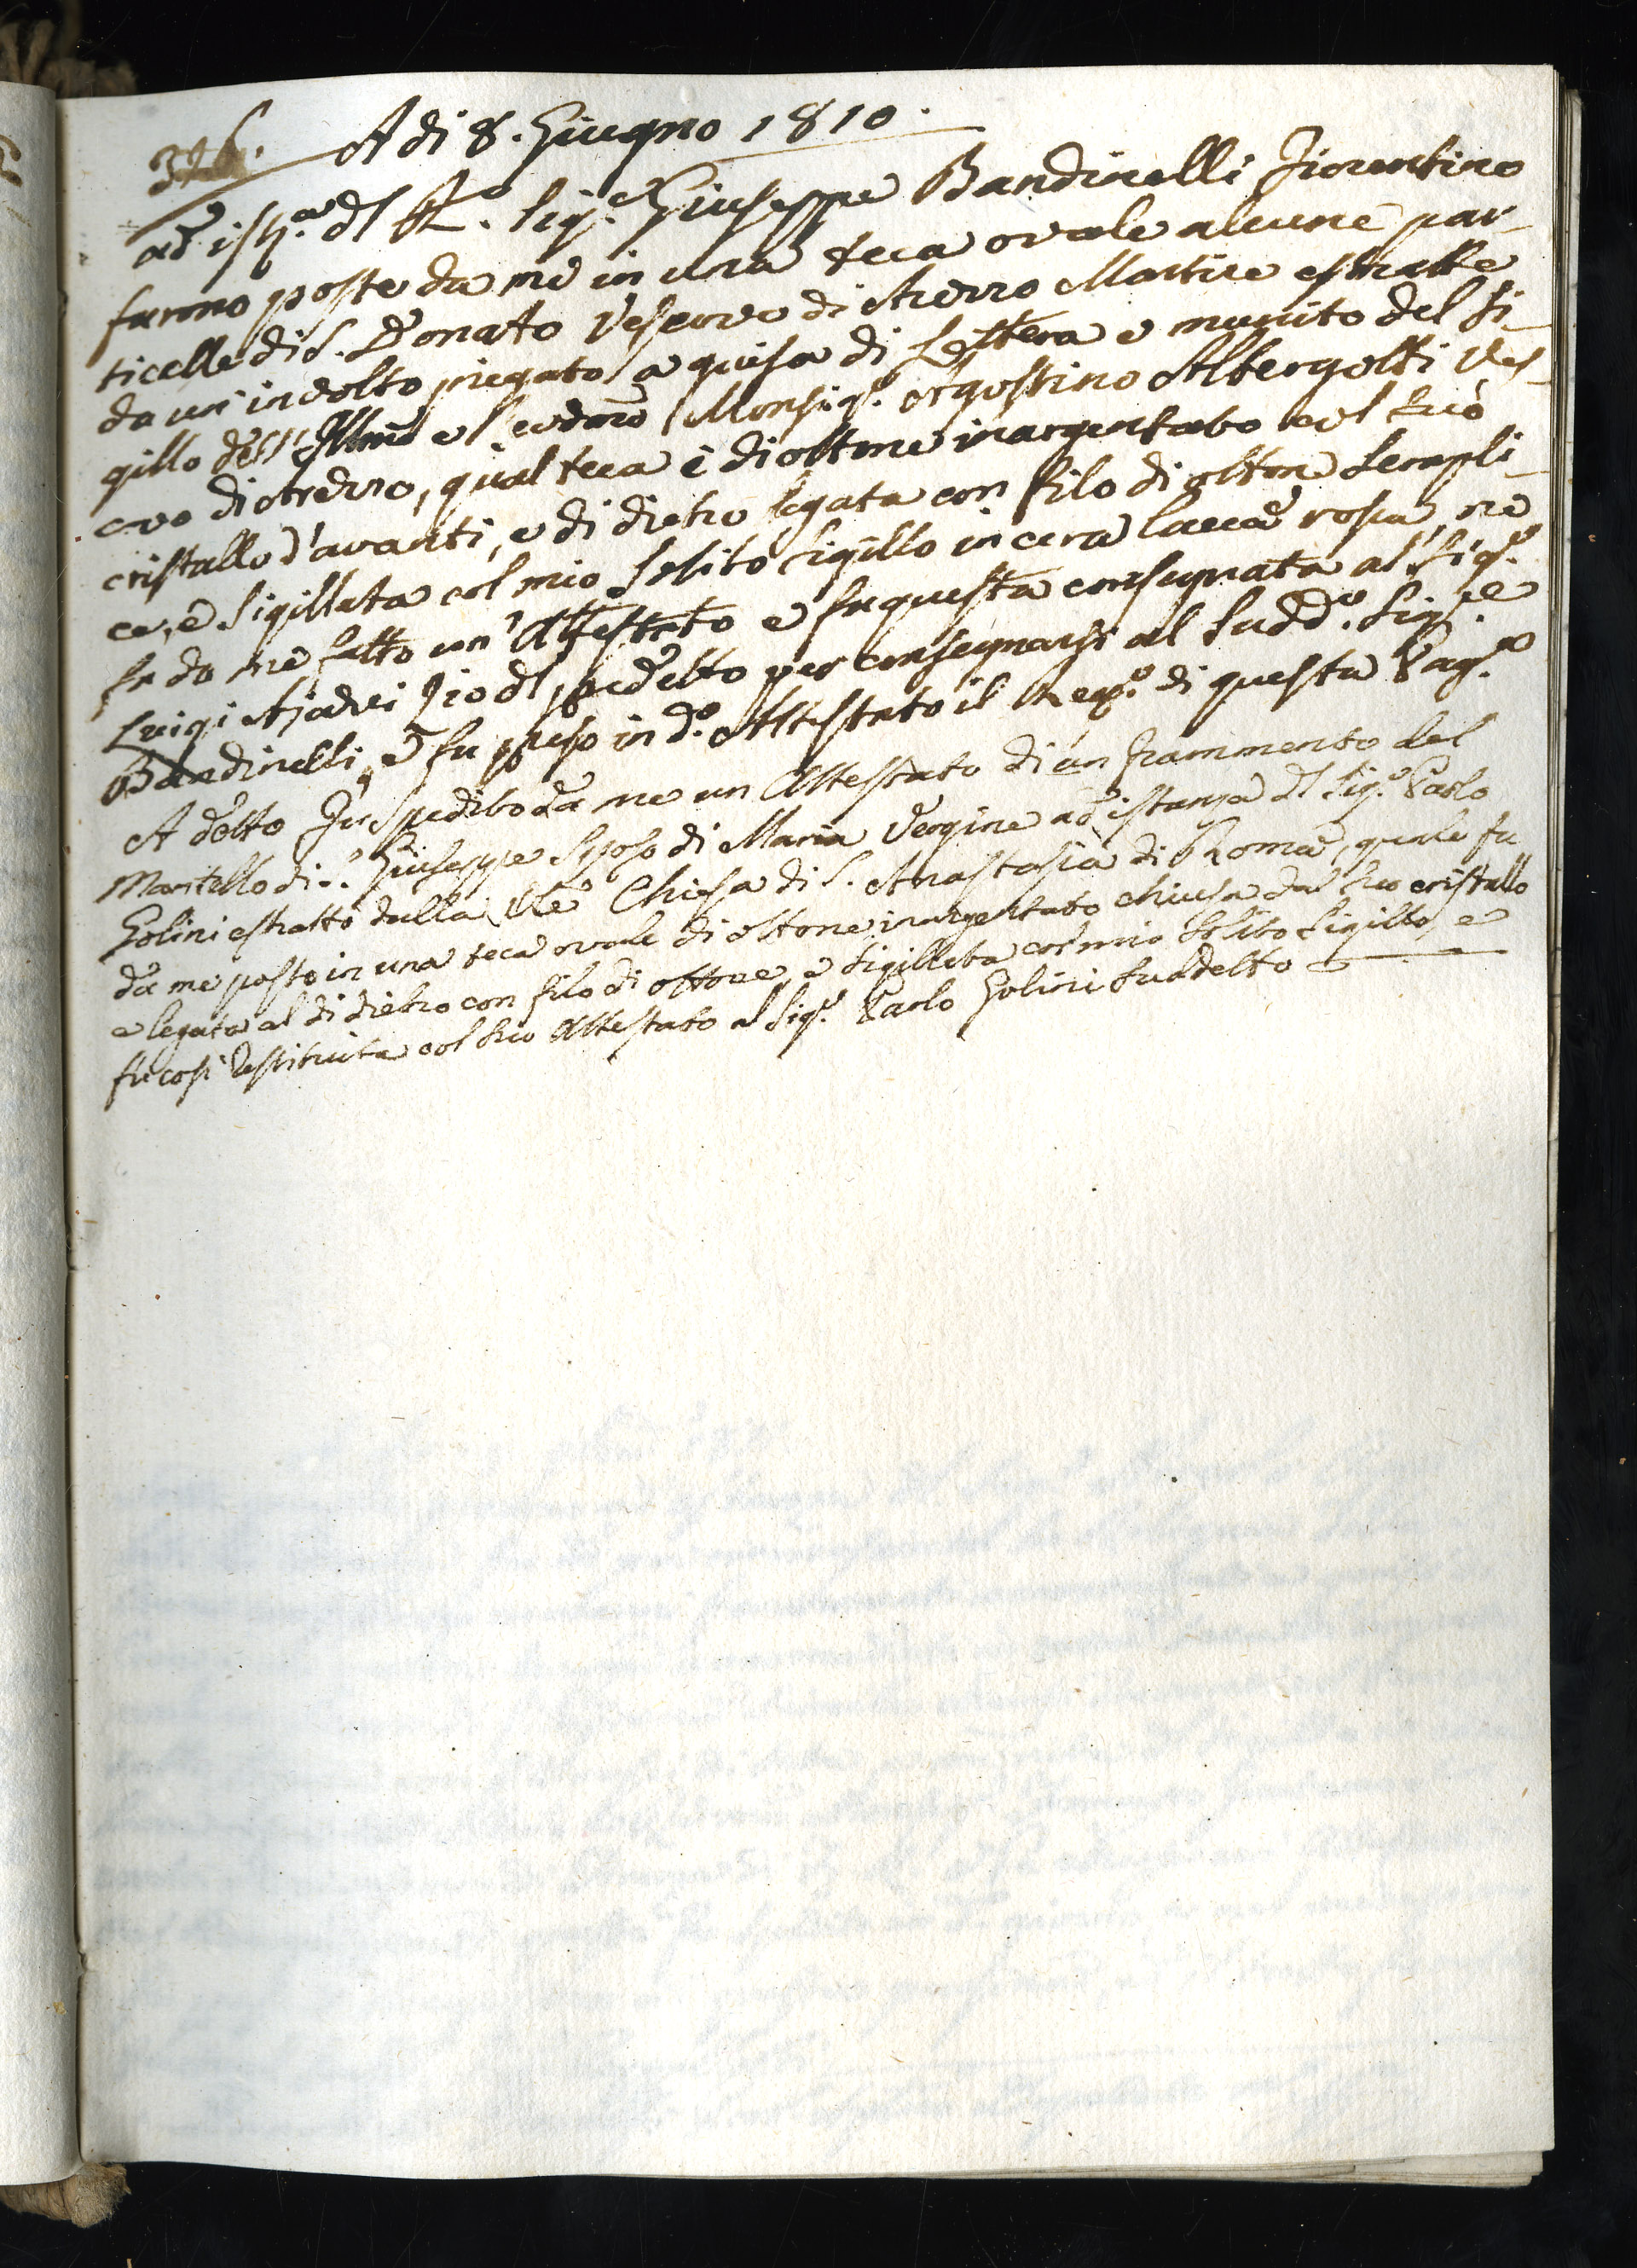 A di 8. Giugno 1810.
ad ist.a dl R.o Sig.e Giuseppe Bandinelli Fiorentino
furono poste da me in una teca ovale alcune par-
ticelle di S. Donato Vescovo di Arezzo Martire estratte
da un' involto piegato a guisa di Lettera e munito del Si-
gillo dell' Illmo e Monsig.e Agostino Albergotti Ves-
covo di Arezzo, qual teca è di ottone inargentato col suo
cristallo d'avanti, e di dietro legata con filo di otton sempli-
ce, e sigillata col mio solito sigillo in cera lacca rossa, ne
fu da me fatto un' Attestato e fu questa consegnata al Sig.e
Luigi per consegnarsi al Sudd.o Sig.re
Bandinelli, e fu preso in d.o Attestato il Reg.o di questa Pag.a
A detto fu spedito da me un Attestato di un frammento del
Mantello di S. Giuseppe Sposo di Maria Vergine ad istanza dl Sig.e Carlo
Golini estratto dalla Ve Chiesa di S. Anastasia di Roma, quale fu
da me posto in una teca ovale di ottone inargentato chiusa dal suo cristallo
e legata al di dietro con filo di ottone, e sigillata col mio solito sigillo, e
fu così restituita col suo Attestato al Sig.e Carlo Golini suddetto